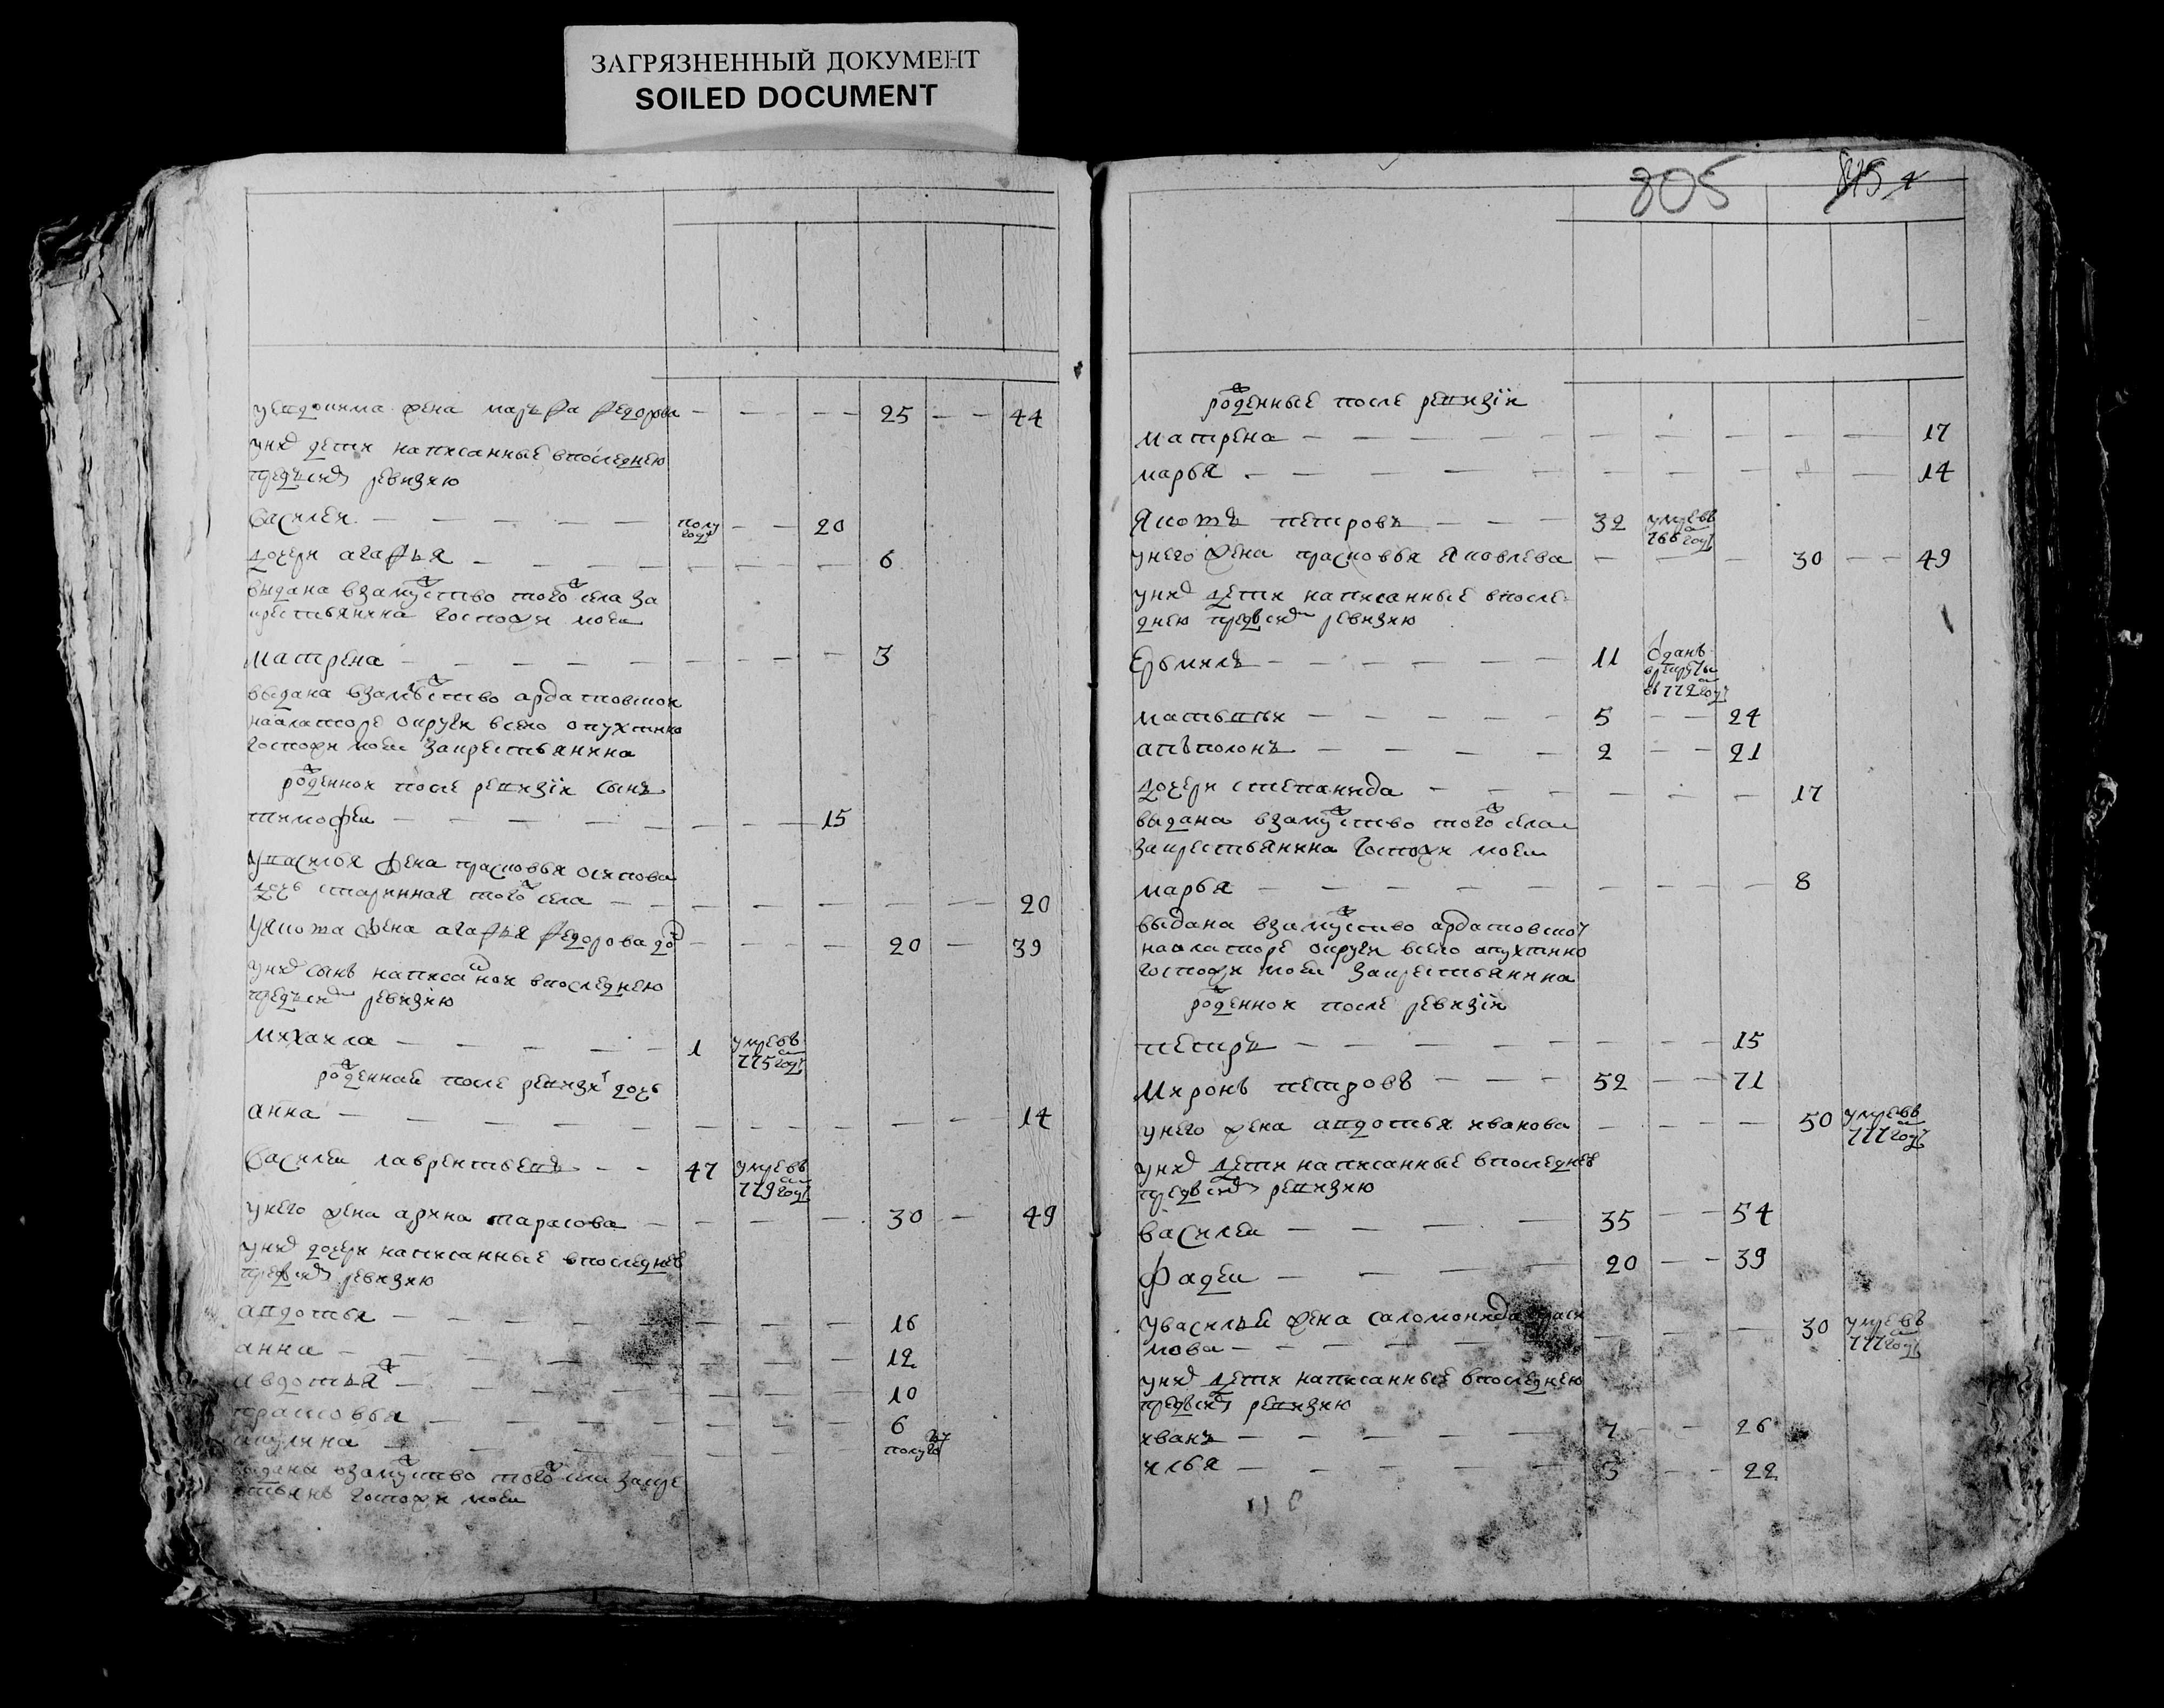 ЗАГРЯЗНЕННЫЙ ДОКУМЕНТ
SOILED DOCUMENT
уевдокима жена марѳа ѳедорова — — — — 25 — — 44
унихъ дети написанные впоследнею
предъ сихъ ревизию
василеи — — — — — полу году — — 20
дочери агафья — — — — — — — — 6
выдана взамужство того села за
крестьянина госпожи моеи
матрена — — — — — — — — 3
выдана взамужство ардатовскои
наалаторе округи всело опухтино
госпожи моеи закрестьянина
рожденнои после ревизіи сынъ
тимофеи — — — — — — — 15
увасилья жена прасковья осипова
дочь старинная того села — — — — — — — 20
уякова жена агафья ѳедорова до — — — — 20 — 39
унихъ сынъ написаннои впоследнею
предъ сихъ ревизию
михаила — — — — — 1 умревъ 775 году
рожденная после ревизи дочь
анна — — — — — — — — — — 14
василеи лаврентьевъ — — 47 умревъ 779 году
унего жена арина тарасова — — — — — 30 — 49
унихъ дочери написанные впоследнее
предъ сихъ ревизию
авдотья — — — — — — — — 16
анна — — — — — — — — 12
авдотья — — — — — — — — 10
прасковья — — — — — — — 6
акулина — — — — — — полугоду
выдана взамужство того села закре
стьянъ госпожи моеи
805
рожденные после ревизіи
матрена — — — — — — — — — — 17
марья — — — — — — — — — — 14
яковъ петровъ — — — 32 умревъ 766 году
унего жена прасковья яковлева — — — 30 — — 49
унихъ дети написанные впосле
днею предъ сихъ ревизию
ермилъ — — — — — — 11 отданъ врекруты въ 772 году
матьвеи — — — — — 5 — — 24
аньполонъ — — — — 2 — — 21
дочери степанида — — — — — — 17
выдана взамужство того села
закрестьянина госпожи моеи
марья — — — — — — — — — 8
выдана взамужство ардатовскои
наалаторе округи всело опухтино
госпожи моеи закрестьянина
рожденнои после ревизіи
петръ — — — — — — — — 15
миронъ петровъ — — — 52 — — 71
унего жена авдотья иванова — — — — 50 умревъ 777 году
унихъ дети написанные впоследнее
предъ сихъ ревизию
василеи — — — — 35 — — 54
фадеи — — — — 20 — — 39
увасилья жена саломонида
мова — — — — — — — — 30 умревъ 777 году
унихъ дети написанные впоследнею
предъ сихъ ревизию
иванъ — — — — — 7 — — 26
илья — — — — — 3 — — 22